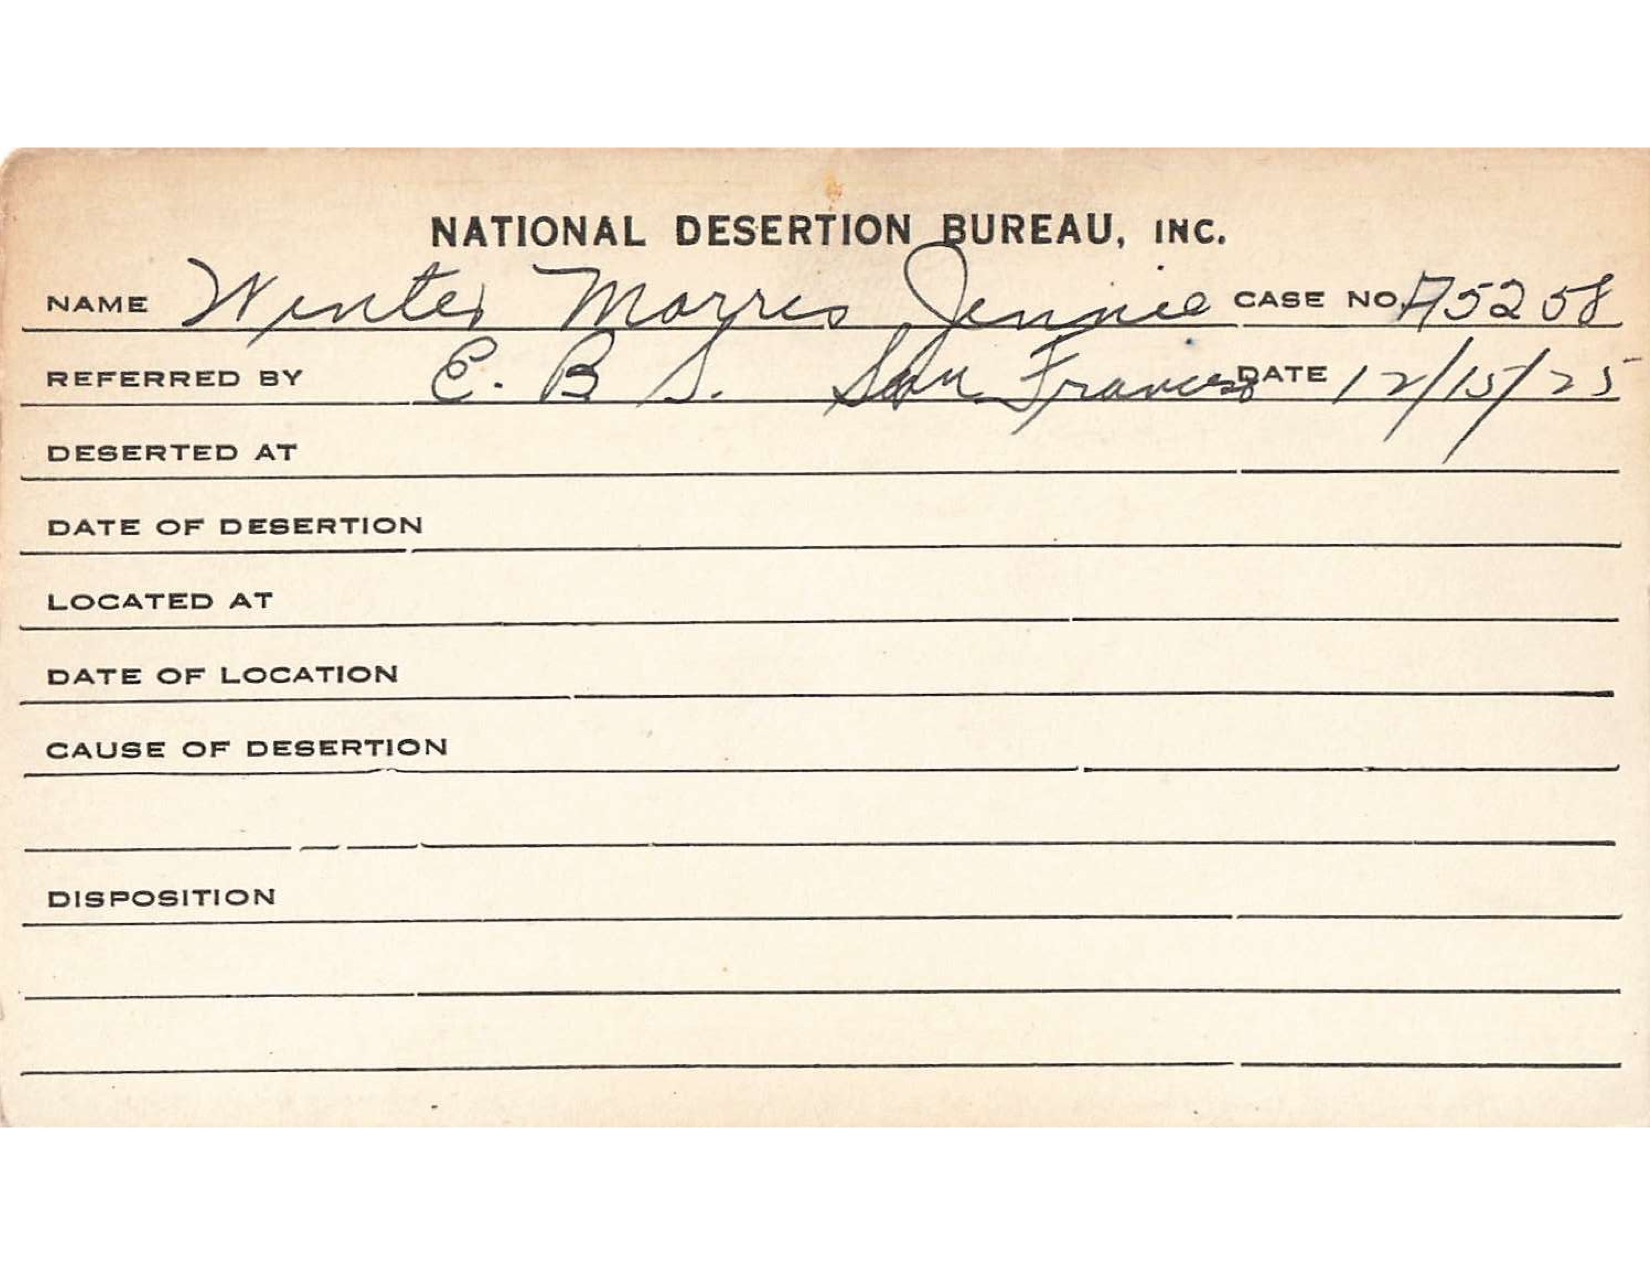 NATIONAL DESERTION BUREAU, INC.
NAME Winter Morris Jennie CASE NO. A5258
REFERRED BY E. B S. San Francisco DATE 12/15/25
DESERTED AT
DATE OF DESERTION
LOCATED AT
DATE OF LOCATION
CAUSE OF DESERTION
DISPOSITION